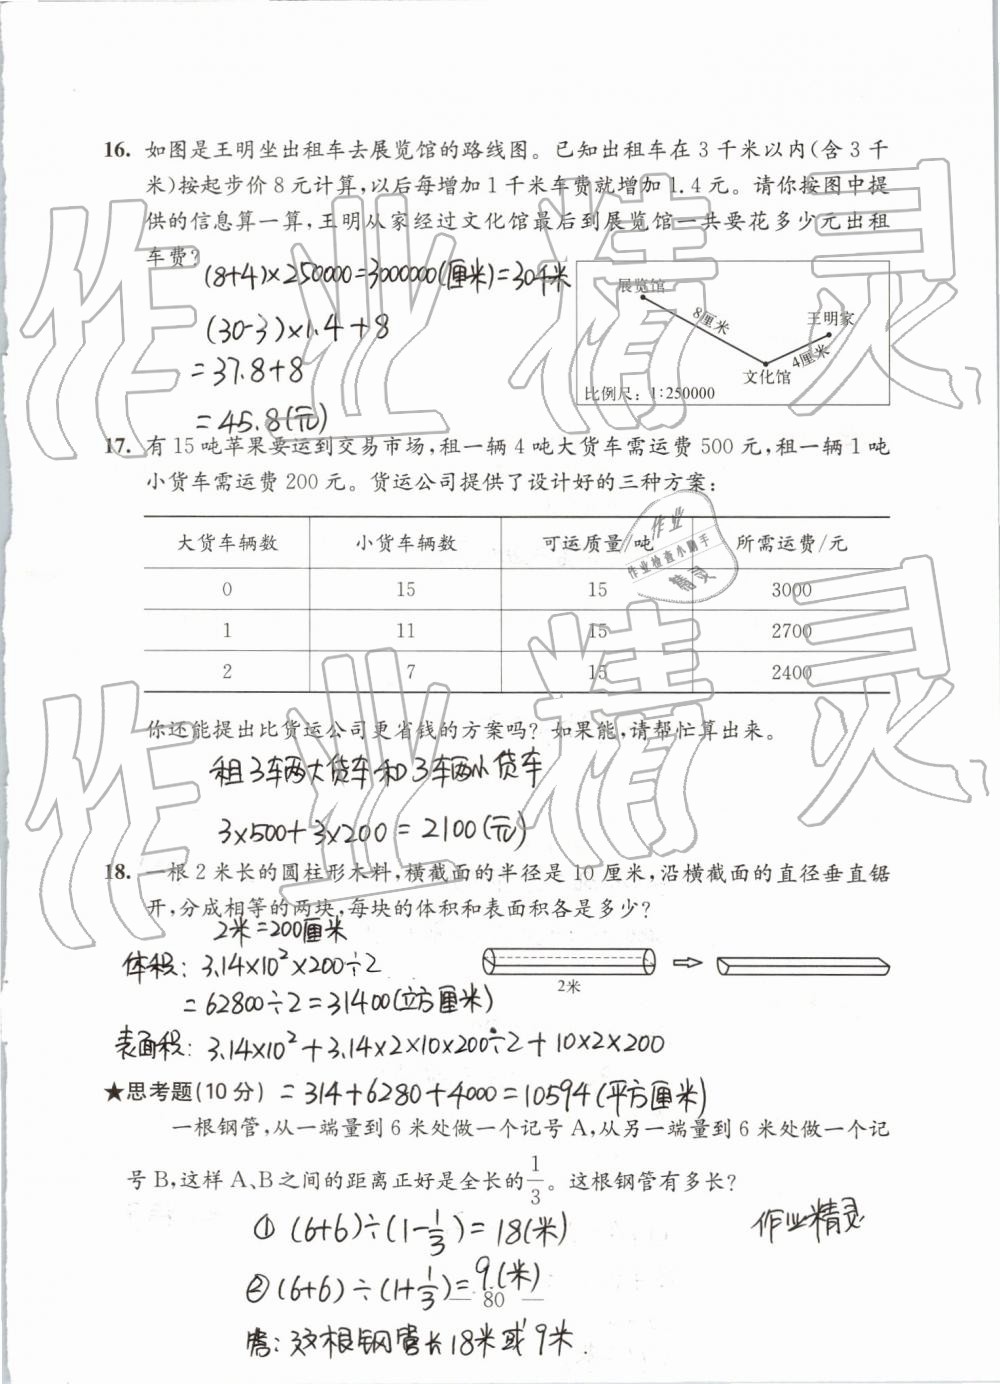 16. 如图是王明坐出租车去展览馆的路线图。已知出租车在 3 千米以内(含 3 千
米)按起步价 8 元计算,以后每增加 1 千米车费就增加 1.4 元。请你按图中提
供的信息算一算,王明从家经过文化馆最后到展览馆一共要花多少元出租
车费?
(8+4)×250000=3000000(厘米)=30千米
(30-3)×1.4+8
=37.8+8
=45.8(元)
展览馆
8厘米
王明家
4厘米
文化馆
比例尺：1:250000
17. 有 15 吨苹果要运到交易市场,租一辆 4 吨大货车需运费 500 元,租一辆 1 吨
小货车需运费 200 元。货运公司提供了设计好的三种方案：
大货车辆数 小货车辆数 可运质量/吨 所需运费/元
0 15 15 3000
1 11 15 2700
2 7 15 2400
你还能提出比货运公司更省钱的方案吗? 如果能,请帮忙算出来。
租3车两大货车和3车两小货车
3×500+3×200=2100(元)
18. 一根 2 米长的圆柱形木料,横截面的半径是 10 厘米,沿横截面的直径垂直锯
开,分成相等的两块,每块的体积和表面积各是多少?
2米=200厘米
体积：3.14×10²×200÷2
=62800÷2=31400(立方厘米)
2米
表面积：3.14×10²+3.14×2×10×200÷2+10×2×200
=314+6280+4000=10594(平方厘米)
★思考题(10 分)
一根钢管,从一端量到 6 米处做一个记号 A,从另一端量到 6 米处做一个记
号 B,这样 A、B 之间的距离正好是全长的1/3。这根钢管有多长?
① (6+6)÷(1-1/3)=18(米)
② (6+6)÷(1+1/3)=9(米)
答：这根钢管长18米或9米.
作业精灵
— 80 —
作业精灵
作业精灵
作业
作业检查小助手
精灵